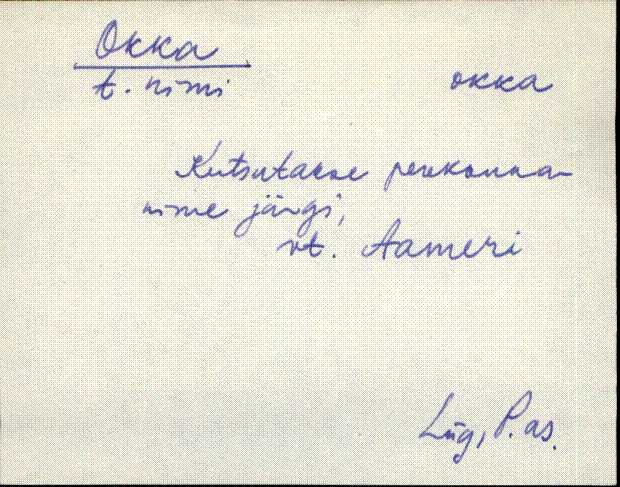 Okka
t. nimi okka
Kutsutakse perekonna-
nime järgi,
vt. Aameri
Lüg, P. as.